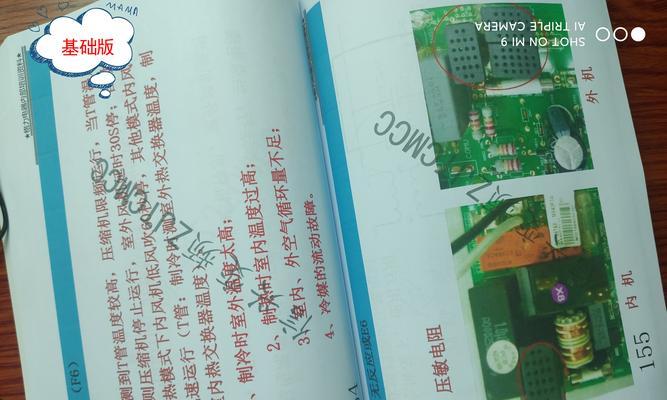 基础版
MAMA
★格力电器内部培训资料★
(F6)
测到T管温度较高，压缩机限频运行，当T管温
则压缩机停止运行，室外风
时30S停；
热模式下内风机低风吹60S停，其他模式内风
速运行（T管：制冷时测室外热交换器温度，制
内热交换器温度）
、制冷时室外温度太高；
2、制热时室内温度过高；
3、室内、外空气循环量不足；
4、冷媒的流动故障。
无反应或E6
压敏电阻
外机
内机
155
SHOT ON MI 9
AI TRIPLE CAMERA